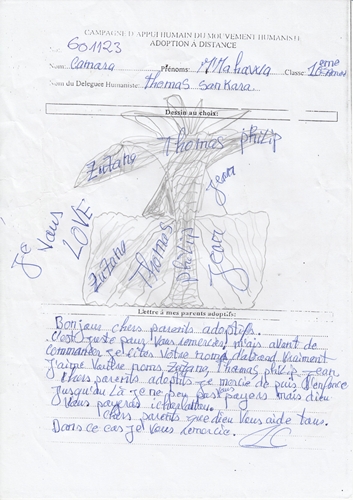 CAMPAGNE D'APPUI HUMAIN DU MOUVEMENT HUMANISTE
ADOPTION À DISTANCE
601123
Nom: Camara Prénoms: Mahawa Classe: 10ème
Nom du Deleguet Humaniste: Thomas Sankara
Dessin au choix:
Zuzana Thomas philip
Jean
Je Vous LOVE
Zuzana Thomas philip Jean
Lettre à mes parents adoptifs:
Bonjour chers parents adoptifs.
C'est juste pour vous remercies, mais avant de
Commancer je cites votre noms, d'abrand vraiment
J'aime votre noms Zuzana, Thomas philip Jean
Chers parents adoptifs je mercie de puis l'enfance
Jusqu'au là je ne peu pas payers mais dieu
Vous payeras
Chers parents que dieu vous aide tous.
Dans ce cas je vous remercie.